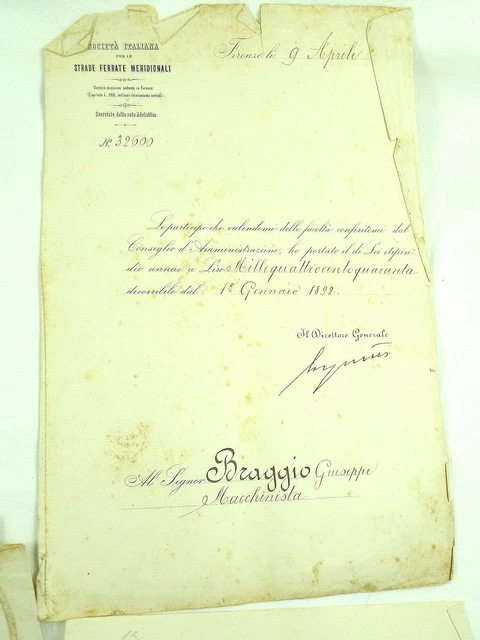 SOCIETÀ ITALIANA
PER LE
STRADE FERRATE MERIDIONALI
Società anonima sedente in Firenze
Capitale L. 260 milioni interamente versati
Esercizio della rete Adriatica
N.º 32600
Firenze le 9 Aprile
Le partecipo che valendomi delle facoltà conferitemi dal
Consiglio d'Amministrazione, ho portato il di Lei stipen-
dio annuo a Lire Millequattrocentoquaranta
decorribile dal 1º Gennaio 1892
Il Direttore Generale
Al Signor Braggio Giuseppe
Macchinista